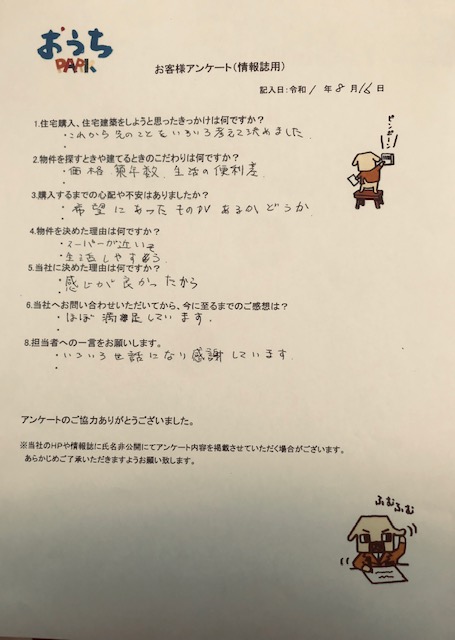 おうち
PARK
お客様アンケート(情報誌用)
記入日:令和 1 年 8 月 16 日
ピンポーン
1.住宅購入、住宅建築をしようと思ったきっかけは何ですか?
・これから先のことをいろいろ考えて決めました。
・
2.物件を探すときや建てるときのこだわりは何ですか?
・価格、築年数、生活の便利差
・
3.購入するまでの心配や不安はありましたか?
・希望にあったものがあるかどうか
・
4.物件を決めた理由は何ですか?
・スーパーが近い
・生活しやすそう
5.当社に決めた理由は何ですか?
・感じが良かったから
・
6.当社へお問い合わせいただいてから、今に至るまでのご感想は?
・ほぼ満足しています。
・
8.担当者への一言をお願いします。
・いろいろ世話になり感謝しています
・
アンケートのご協力ありがとうございました。
※当社のHPや情報誌に氏名非公開にてアンケート内容を掲載させていただく場合がございます。
あらかじめご了承いただきますようお願い致します。
ふむふむ